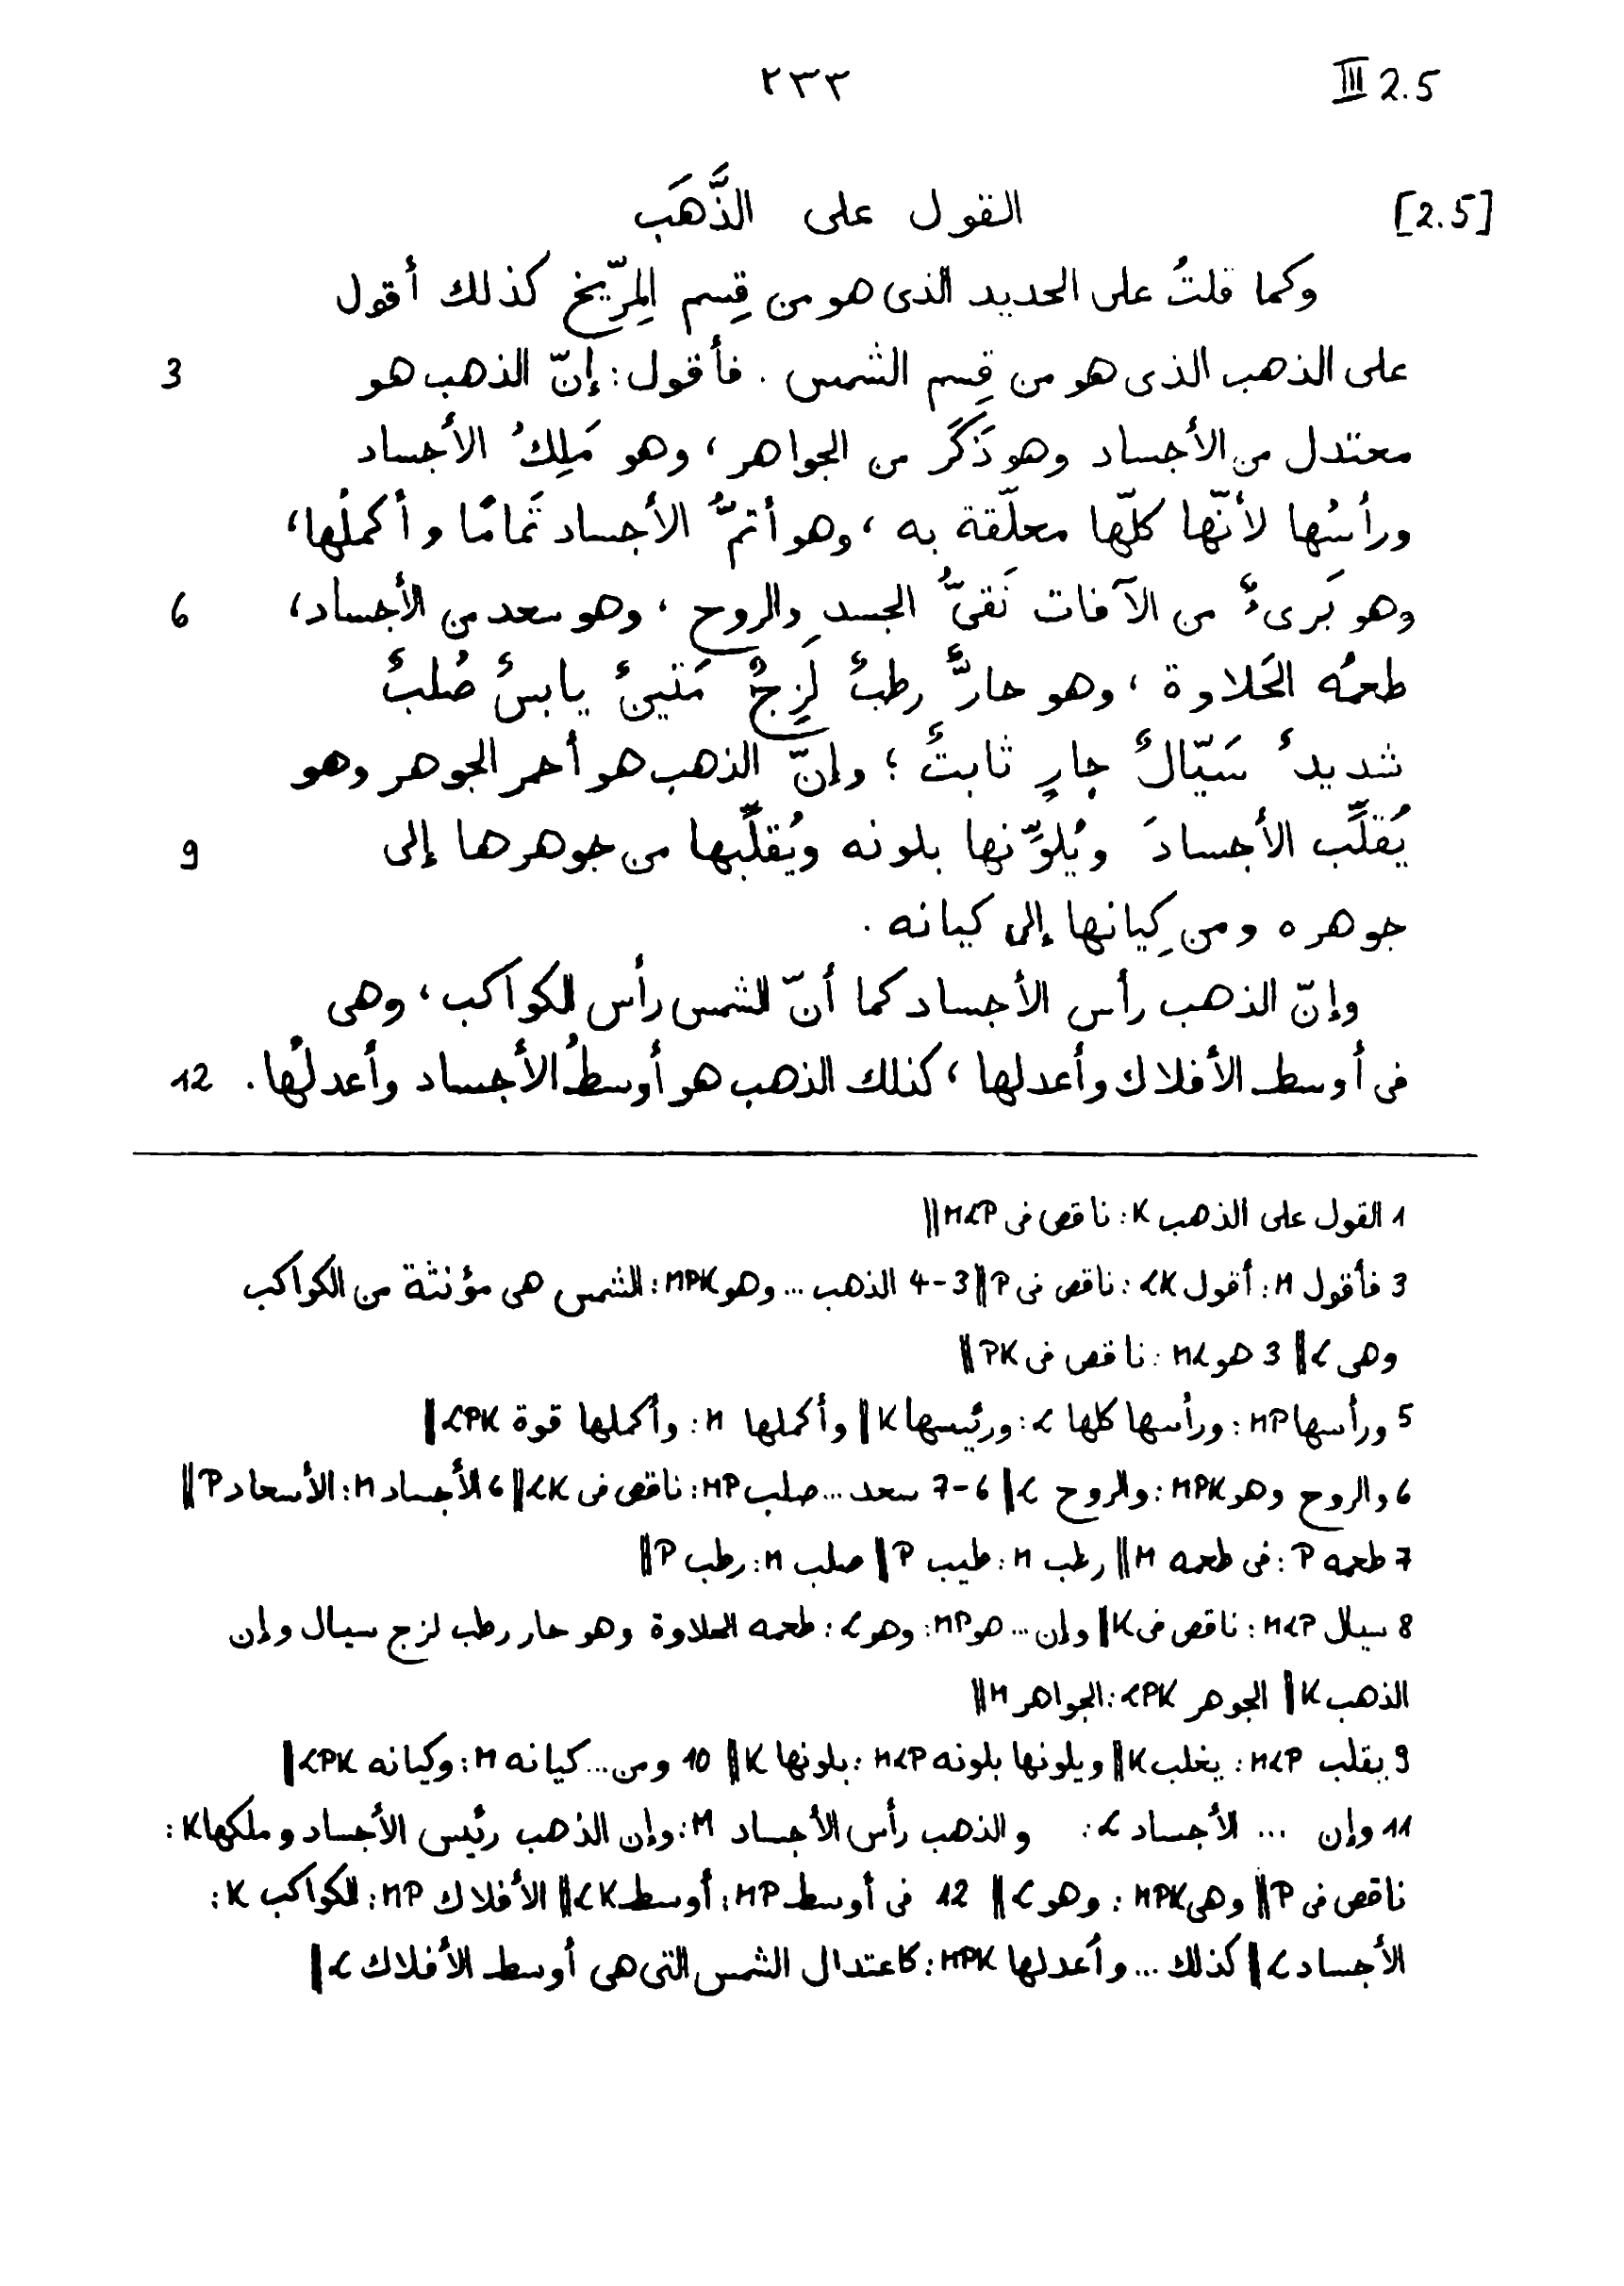 ٢٣٣ III 2.5
[2.5] القول على الذَّهَب
وكما قلتُ على الحديد الذى هو من قِسم المِرّيخ كذلك أقول
على الذهب الذى هو من قِسم الشمس . فأقول : إنّ الذهب هو 3
معتدل من الأجساد وهو ذَكَر من الجواهر ، وهو مَلِكُ الأجساد
ورأسُها لأنّها كلّها معلّقة به ، وهو أتمُّ الأجساد تَمامًا وأكملُها ،
وهو بَرىءٌ من الآفات نَقىُّ الجسدِ والروح ، وهو سعد من الأجساد ، 6
طعمُه الحَلاوة ، وهو حارٌّ رطبٌ لَزِجٌ مَتينٌ يابسٌ صُلبٌ
شديدٌ سَيّالٌ جارٍ ثابتٌ ؛ وإنّ الذهب هو أحمر الجوهر وهو
يُقلِّب الأجسادَ ويُلوِّنها بلونه ويُقلِّبها من جوهرها إلى 9
جوهره ومن كِيانها إلى كيانه .
وإنّ الذهب رأس الأجساد كما أنّ الشمس رأس الكواكب ، وهى
فى أوسط الأفلاك وأعدلها ، كذلك الذهب هو أوسطُ الأجساد وأعدلُها . 12
1 القول على الذهب K : ناقص فى MLP ||
3 فأقول M : أقول LK : ناقص فى P || 3-4 الذهب ... وهو MPK : الشمس هى مؤنثة من الكواكب
وهى L || 3 هو ML : ناقص فى PK ||
5 ورأسها MP : ورأسها كلها L : ورئيسها K || وأكملها M : وأكملها قوة LPK ||
6 والروح وهو MPK : والروح L || 6-7 سعد ... صلب MP : ناقص فى LK || 6 الأجساد M : الأسعاد P ||
7 طعمه P : فى طعمه M || رطب M : طيب P || صلب M : رطب P ||
8 سيال MLP : ناقص فى K || وإن ... هو MP : وهو L : طعمه الحلاوة وهو حار رطب لزج سيال وإن
الذهب K || الجوهر LPK : الجواهر M ||
9 يقلب MLP : يغلب K || ويلونها بلونه MLP : بلونها K || 10 ومن ... كيانه M : وكيانه LPK ||
11 وإن ... الأجساد L : والذهب رأس الأجساد M : وإن الذهب رئيس الأجساد وملكها K :
ناقص فى P || وهى MPK : وهو L || 12 فى أوسط MP : أوسط LK || الأفلاك MP : الكواكب K :
الأجساد L || كذلك ... وأعدلها MPK : كاعتدال الشمس التى هى أوسط الأفلاك L ||